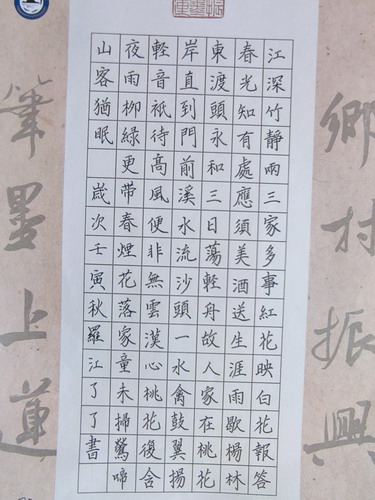 鄉村振興
江深竹靜兩三家多事紅花映白花報答
春光知有處應須美酒送生涯雨歇楊林
東渡頭永和三日蕩輕舟故人家在桃花
岸直到門前溪水流沙頭一水禽鼓翼揚
輕音祇待高風便非無雲漢心桃花復含
夜雨柳綠更帶春煙花落家童未掃鶯啼
山客猶眠 歲次壬寅秋羅江了了書
筆墨上蓮